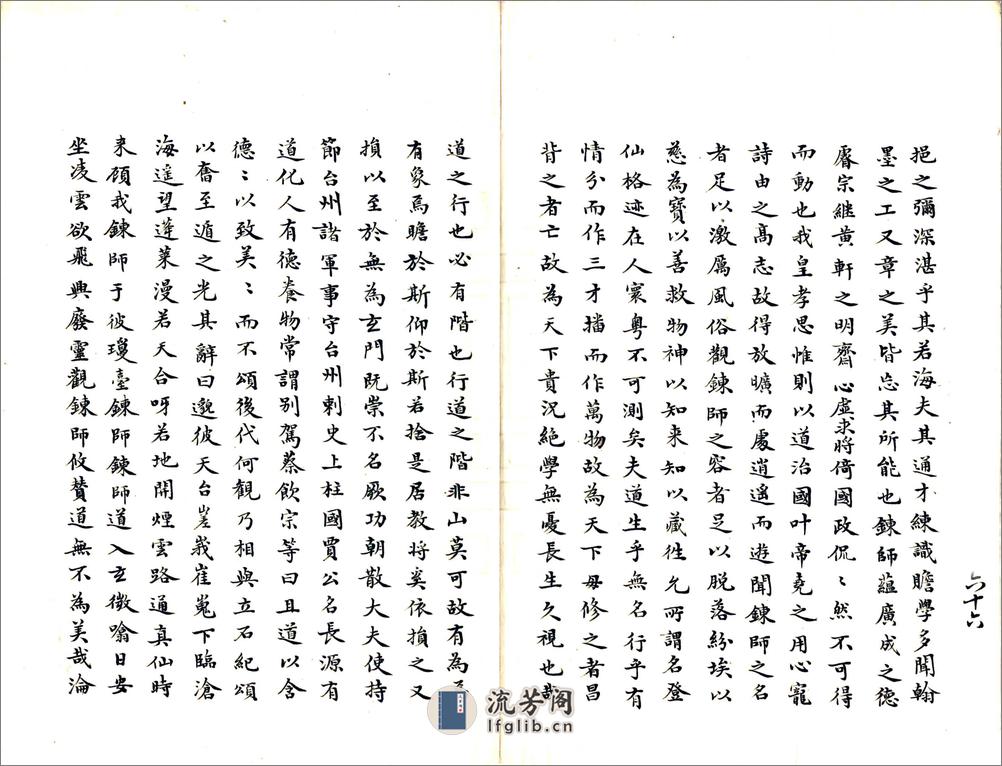 挹之彌深湛乎其若海夫其通才練識贍學多聞翰
墨之工文章之美皆忘其所能也鍊師蘊廣成之德
睿宗繼黃軒之明齋心虛求將倚國政侃〻然不可得
而動也我皇孝思惟則以道治國叶帝堯之用心寵
詩由之高志故得放曠而處逍遥而遊聞鍊師之名
者足以激厲風俗觀鍊師之容者足以脱落紛埃以
慈為寶以善救物神以知来知以藏徃允所謂名登
仙格迹在人寰粤不可測矣夫道生乎無名行乎有
情分而作三才播而作萬物故為天下母修之者昌
背之者亡故為天下貴況絶學無憂長生久視也哉
道之行也必有階也行道之階非山莫可故有為
有象焉瞻於斯仰於斯若捨是居教將奚依損之又
損以至於無為玄門既崇不名厥功朝散大夫使持
節台州諸軍事守台州刺史上柱國賈公名長源有
道化人有德養物常謂别駕蔡飲宗等曰且道以含
德〻以致美〻而不頌後代何觀乃相與立石紀頌
以奮至道之光其辭曰邈彼天台嵳峩崔嵬下臨滄
海遥望蓬萊漫若天合呀若地開煙雲路通真仙時
来顧我鍊師于彼瓊臺鍊師鍊師道入玄微噏日安
坐凌雲欲飛興廢靈觀鍊師攸贊道無不為美哉淪
六十六
流芳阁
lfglib.cn